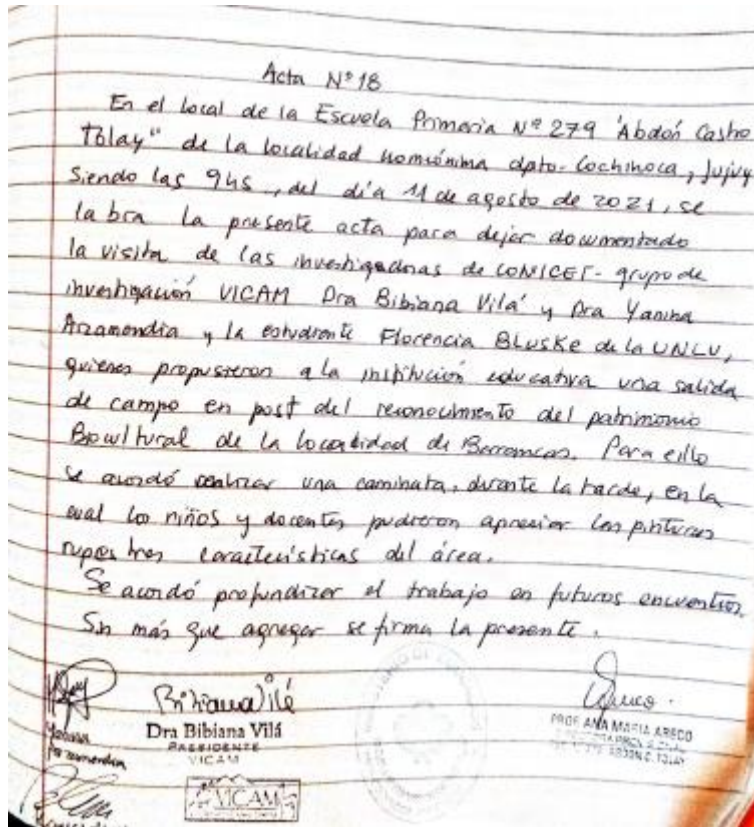 Acta Nº 18
En el local de la Escuela Primaria Nº 279 "Abdón Castro
Tolay" de la localidad homónima dpto. Cochinoca, Jujuy
Siendo las 9hs, del día 11 de agosto de 2021, se
labra la presente acta para dejar documentado
la visita de las investigadoras de CONICET - grupo de
investigación VICAM Dra Bibiana Vilá y Dra Yanina
Arzamendia y la estudiante Florencia BLUSKE de la UNLU,
quienes propusieron a la institución educativa una salida
de campo en post del reconocimiento del patrimonio
Biocultural de la localidad de Barrancas. Para ello
se acordó realizar una caminata, durante la tarde, en la
cual los niños y docentes pudieron apreciar las pinturas
rupestres características del área.
Se acordó profundizar el trabajo en futuros encuentros.
Sin más que agregar se firma la presente.
Bibiana Vilá
Dra Bibiana Vilá
PRESIDENTE
VICAM
Yanina
Arzamendia
VICAM
PROF. ANA MARIA AREDO